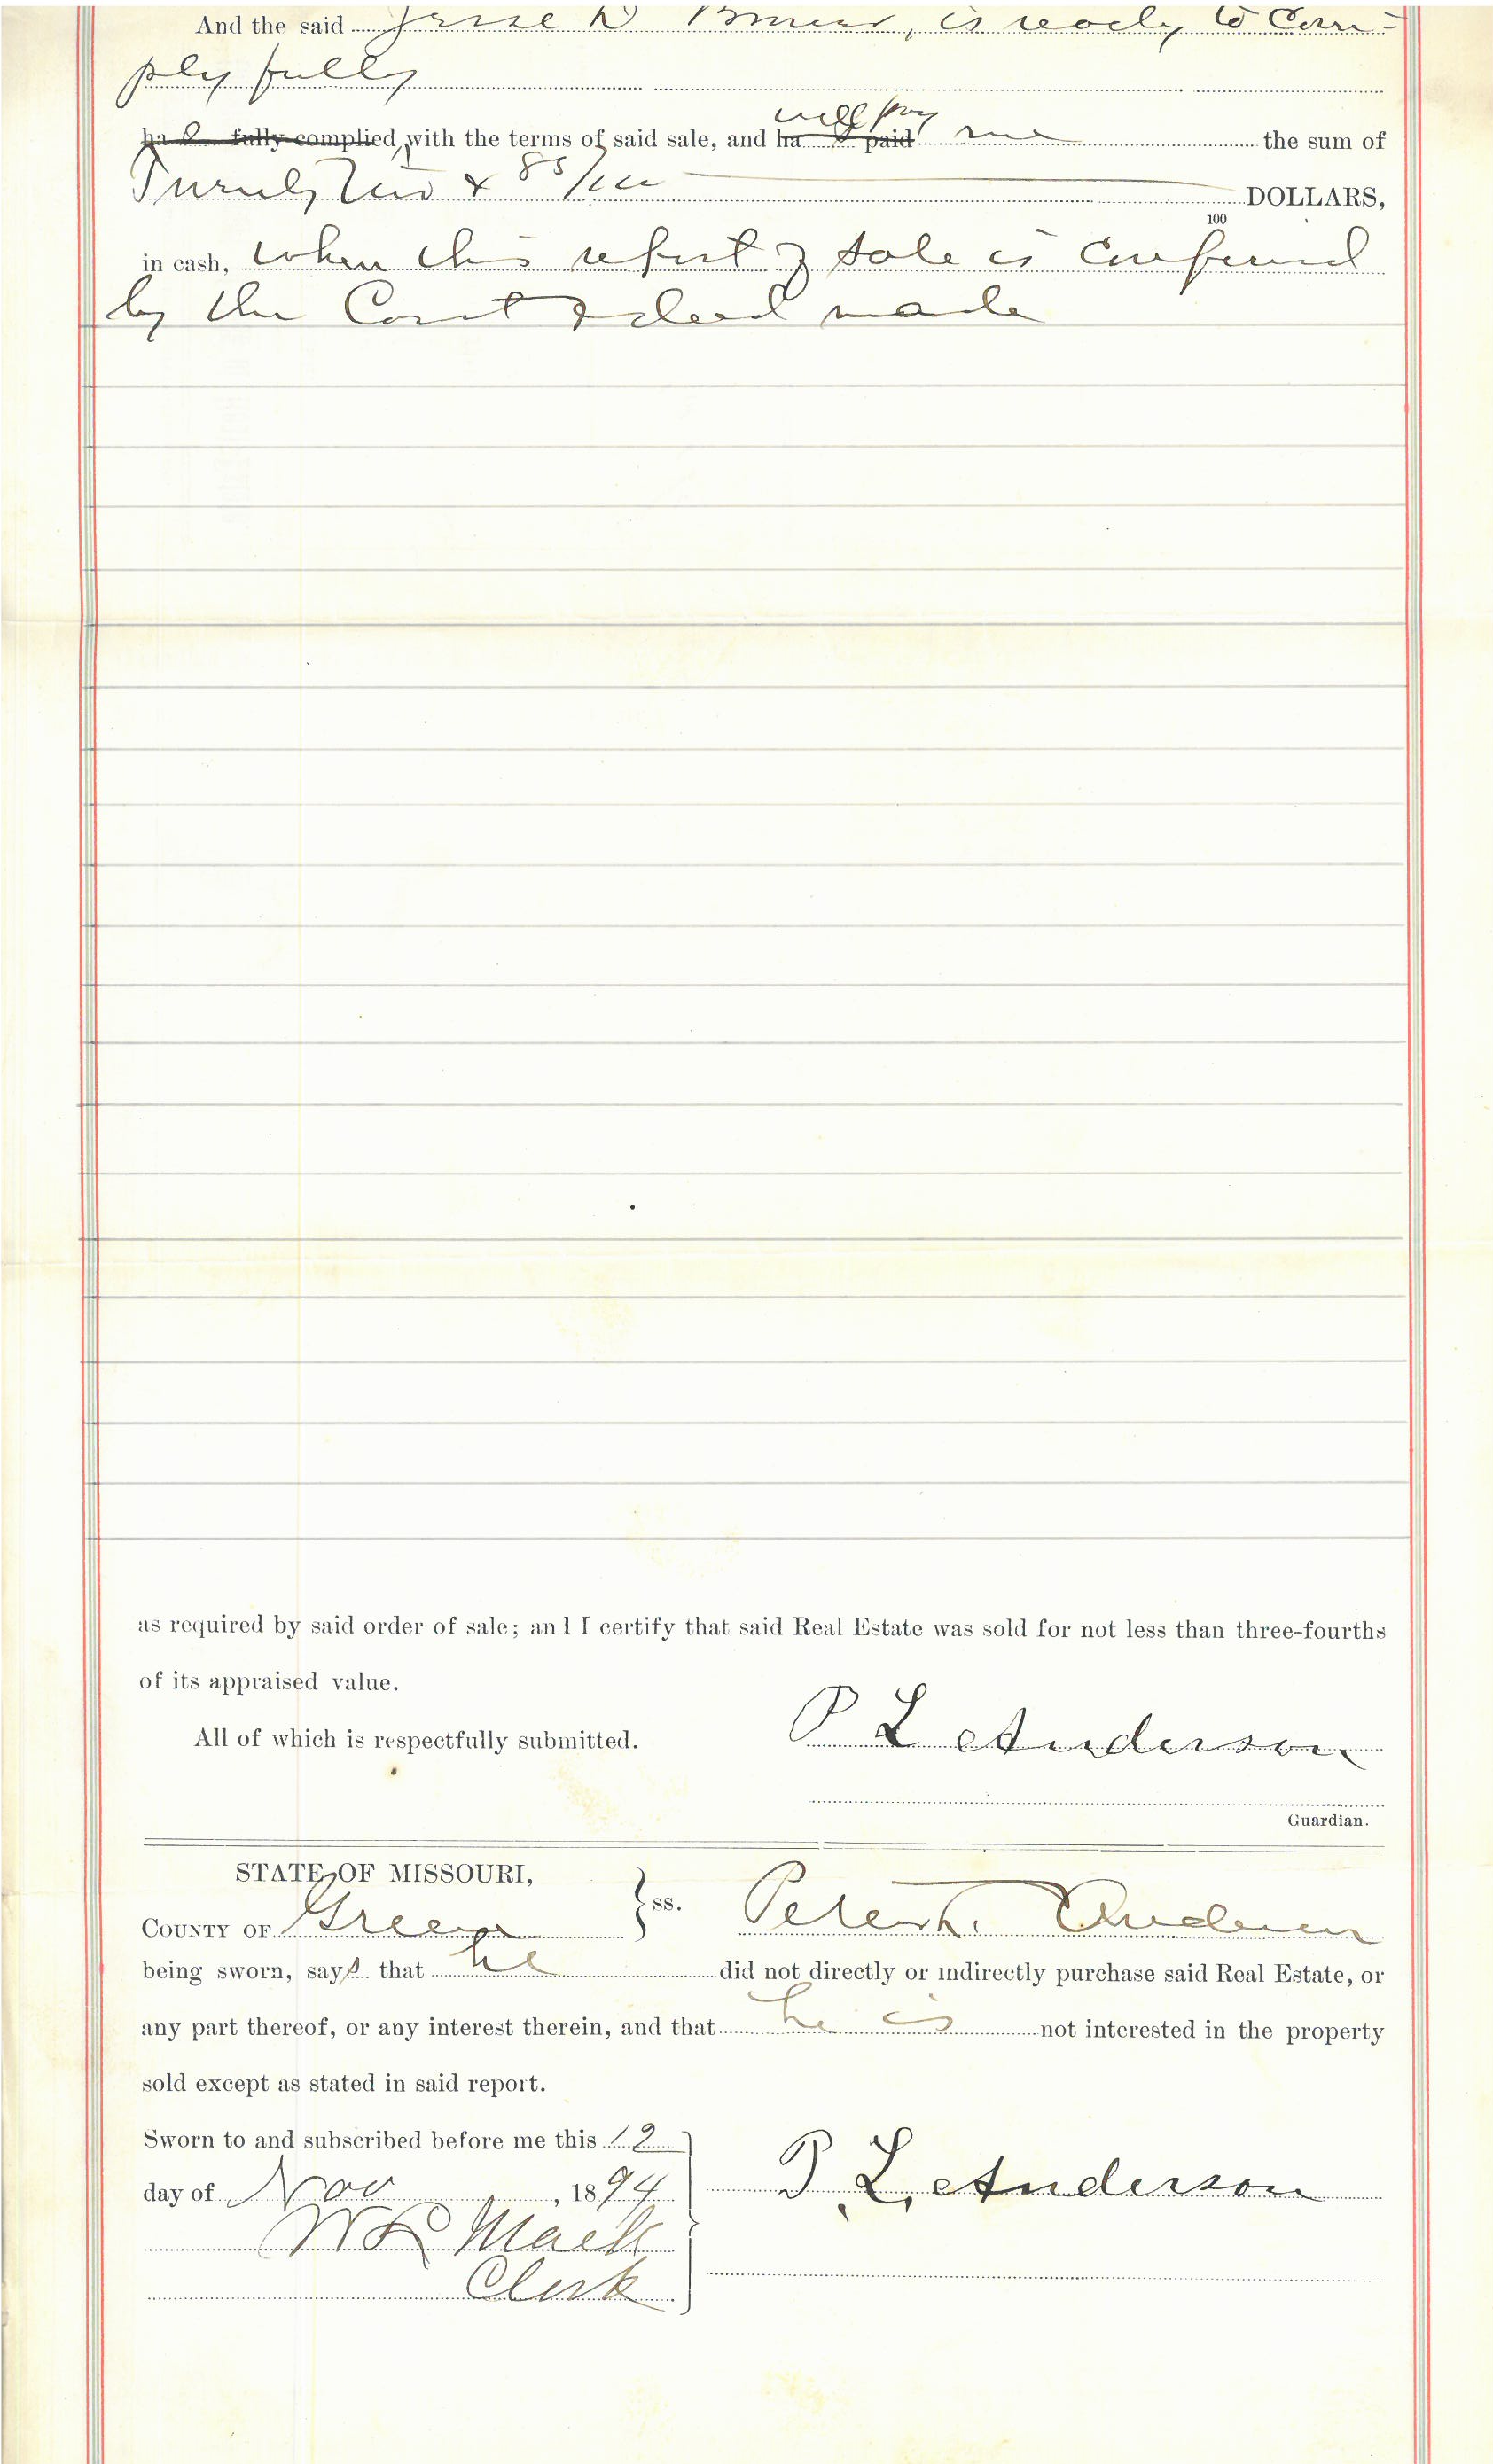 And the said Jesse D , is ready to Com-
ply fully
ha s fully complied with the terms of said sale, and ha s paid will pay me the sum of
Twenty Two & 85/100 DOLLARS,
100
in cash, when this report of sale is confirmed
by the Court & deed made
as required by said order of sale; an l I certify that said Real Estate was sold for not less than three-fourths
of its appraised value.
All of which is respectfully submitted.
P L Anderson
Guardian.
STATE OF MISSOURI,
COUNTY OF Greene ss. Peter L. Anderson
being sworn, says that he did not directly or indirectly purchase said Real Estate, or
any part thereof, or any interest therein, and that he is not interested in the property
sold except as stated in said report.
Sworn to and subscribed before me this 12
day of Nov , 1894 P L, Anderson
Mack
Clerk